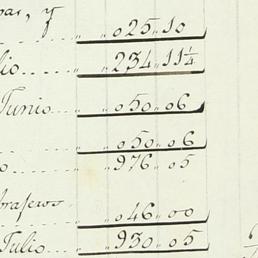 bar, y
025,, 10
lio ..... 234,, 11¼
Junio ... 050,, 06
050,, 06
o ..... 976,, 05
braseros
046,, 00
Julio ... 930,, 05